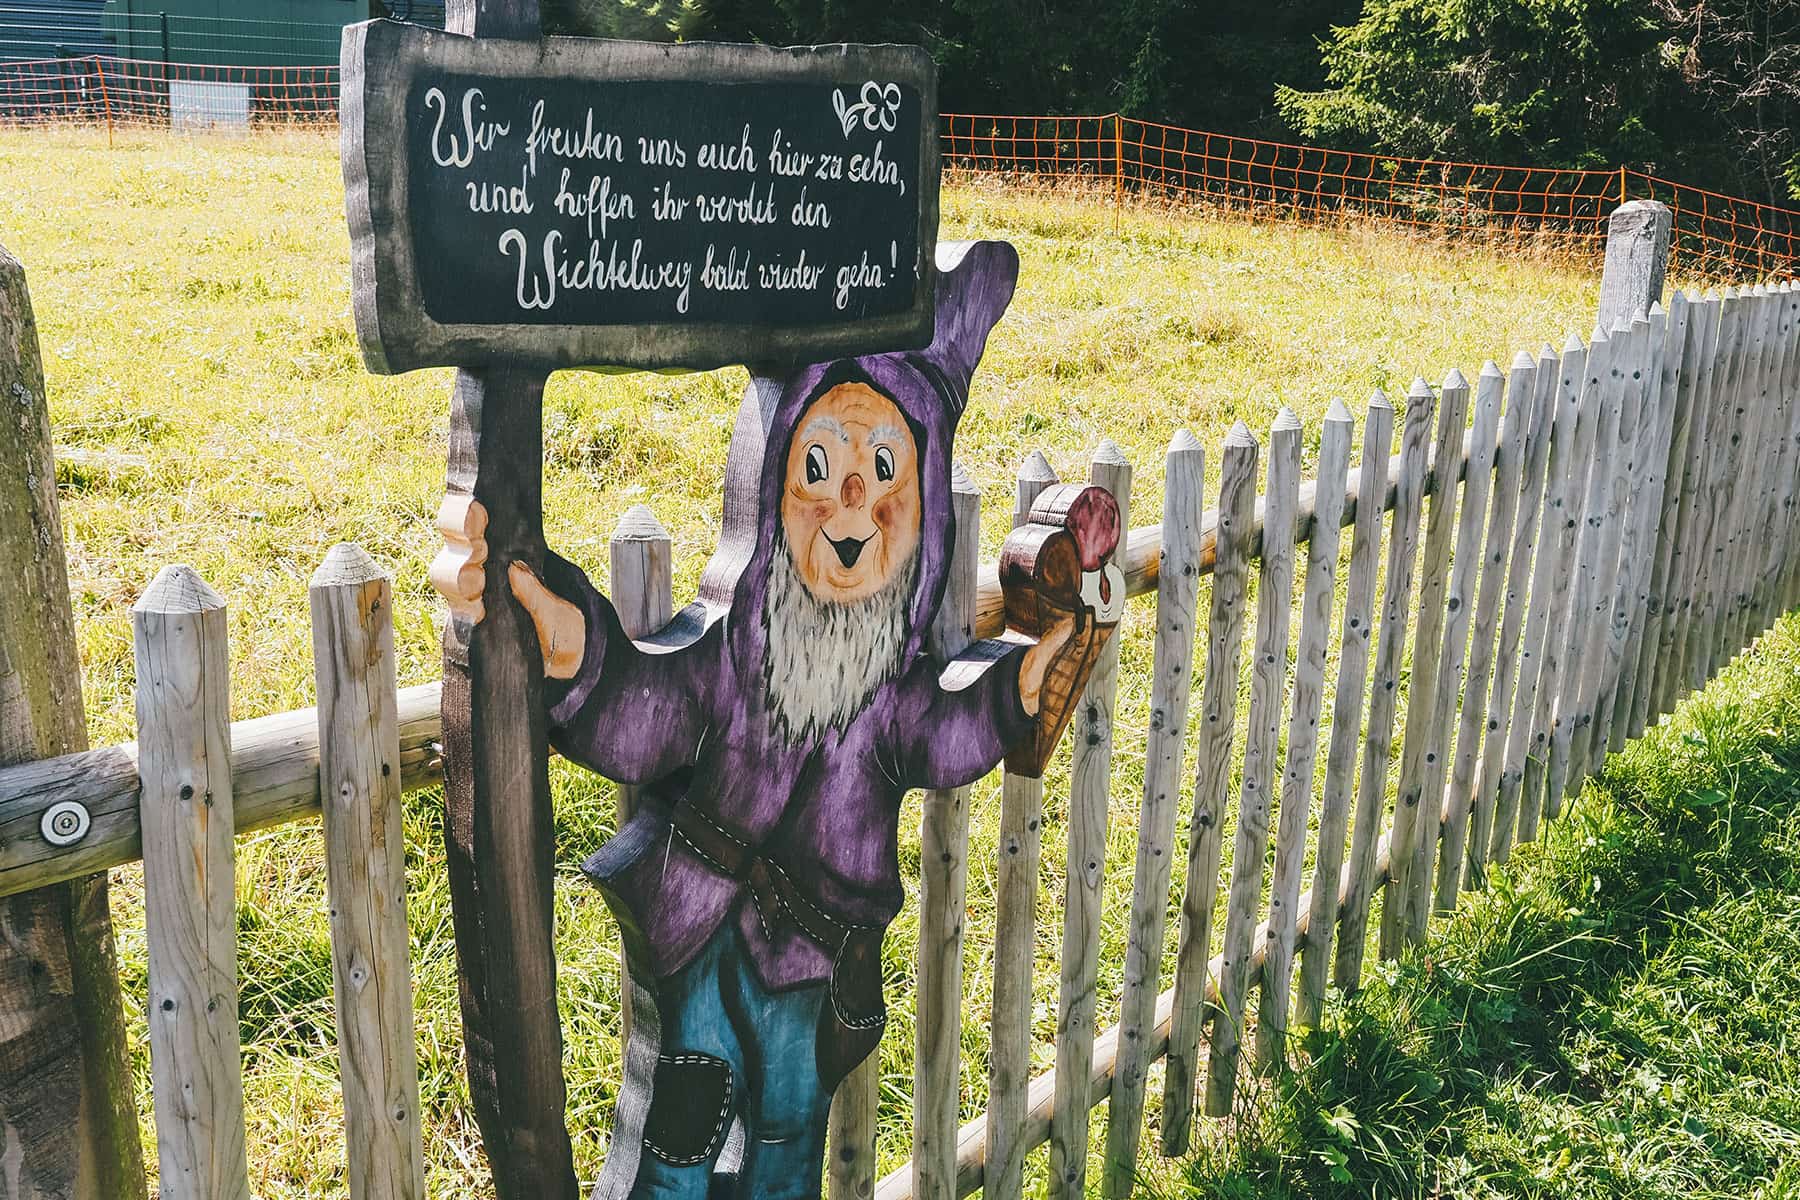 Wir freuten uns euch hier zu sehn,
und hoffen ihr werdet den
Wichtelweg bald wieder gehn!